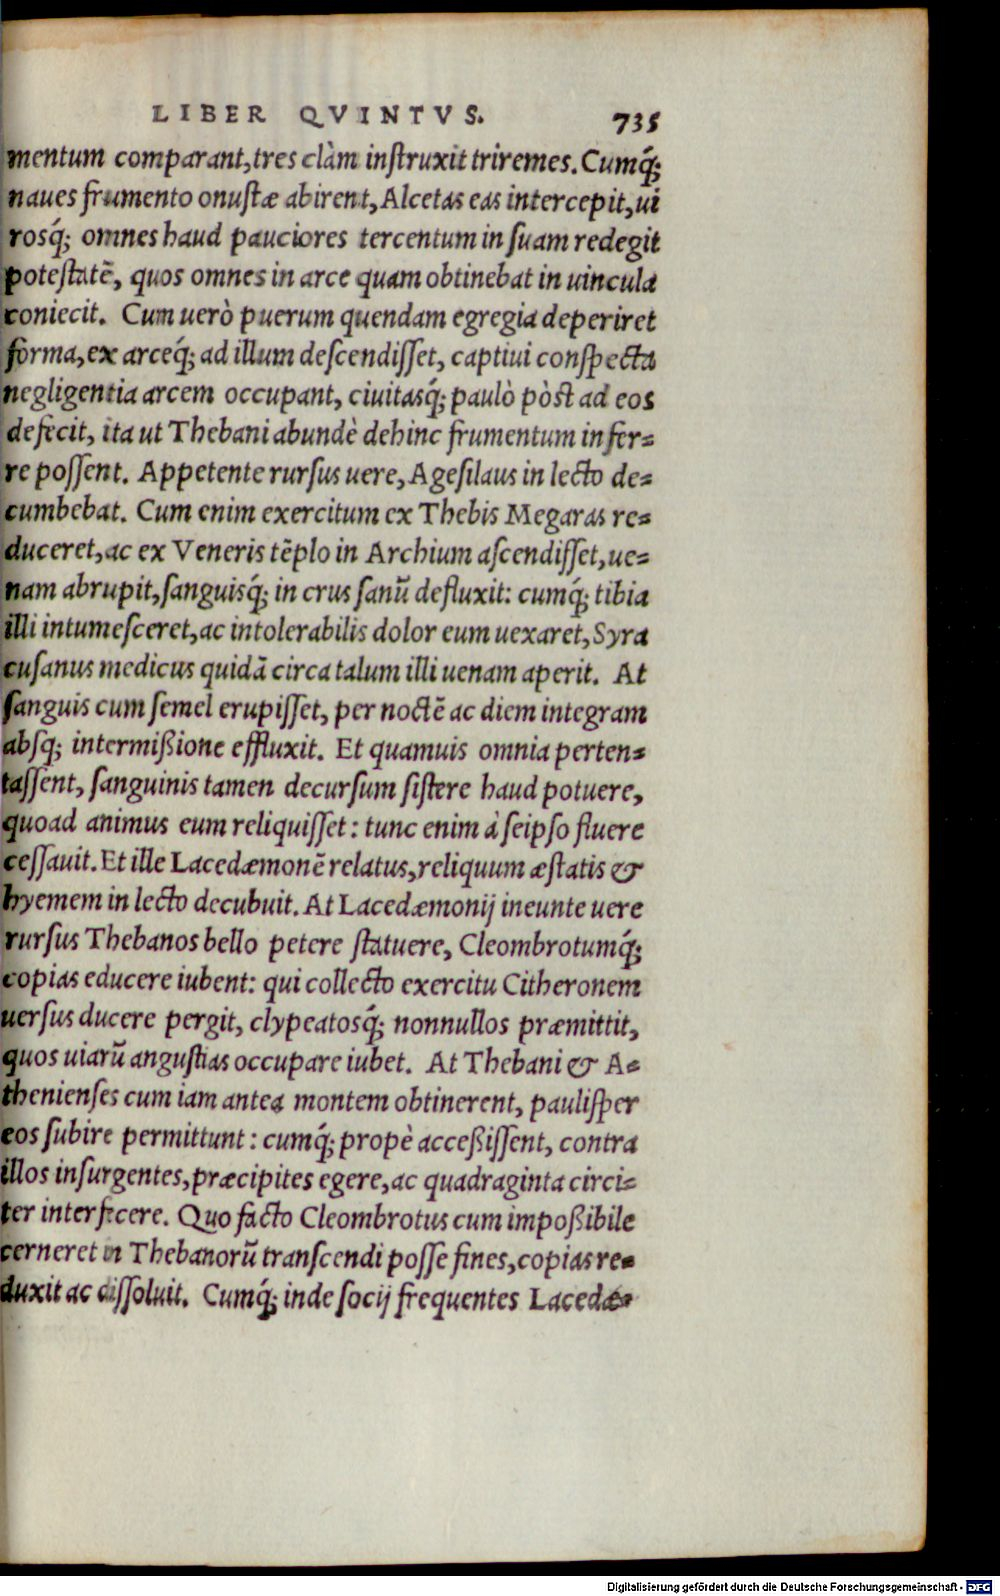 LIBER QVINTVS. 735
mentum comparant, tres clàm inſtruxit triremes. Cumq́;
naues frumento onuſtæ abirent, Alcetas eas intercepit, ui
rosq́; omnes haud pauciores tercentum in ſuam redegit
poteſtatē, quos omnes in arce quam obtinebat in uincula
coniecit. Cum uerò puerum quendam egregia deperiret
forma, ex arceq́; ad illum deſcendiſſet, captiui conſpecta
negligentia arcem occupant, ciuitasq́; paulò pòſt ad eos
defecit, ita ut Thebani abundè dehinc frumentum infer-
re poſſent. Appetente rurſus uere, Ageſilaus in lecto de-
cumbebat. Cum enim exercitum ex Thebis Megaras re-
duceret, ac ex Veneris tēplo in Archium aſcendiſſet, ue-
nam abrupit, ſanguisq́; in crus ſanū defluxit: cumq́; tibia
illi intumeſceret, ac intolerabilis dolor eum uexaret, Syra
cuſanus medicus quidā circa talum illi uenam aperit. At
ſanguis cum ſemel erupiſſet, per noctē ac diem integram
abſq; intermißione effluxit. Et quamuis omnia perten-
taſſent, ſanguinis tamen decurſum ſiſtere haud potuere,
quoad animus eum reliquiſſet: tunc enim à ſeipſo fluere
ceſſauit. Et ille Lacedæmonē relatus, reliquum æſtatis &
hyemem in lecto decubuit. At Lacedæmonij ineunte uere
rurſus Thebanos bello petere ſtatuere, Cleombrotumq́;
copias educere iubent: qui collecto exercitu Citheronem
uerſus ducere pergit, clypeatosq́; nonnullos præmittit,
quos uiarū anguſtias occupare iubet. At Thebani & A-
thenienſes cum iam antea montem obtinerent, pauliſper
eos ſubire permittunt: cumq́; propè acceßiſſent, contra
illos inſurgentes, præcipites egere, ac quadraginta circi-
ter interfecere. Quo facto Cleombrotus cum impoßibile
cerneret in Thebanorū tranſcendi poſſe fines, copias re-
duxit ac diſſoluit. Cumq́; inde ſocij frequentes Lacedæ-
Digitalisierung gefördert durch die Deutsche Forschungsgemeinschaft - DFG